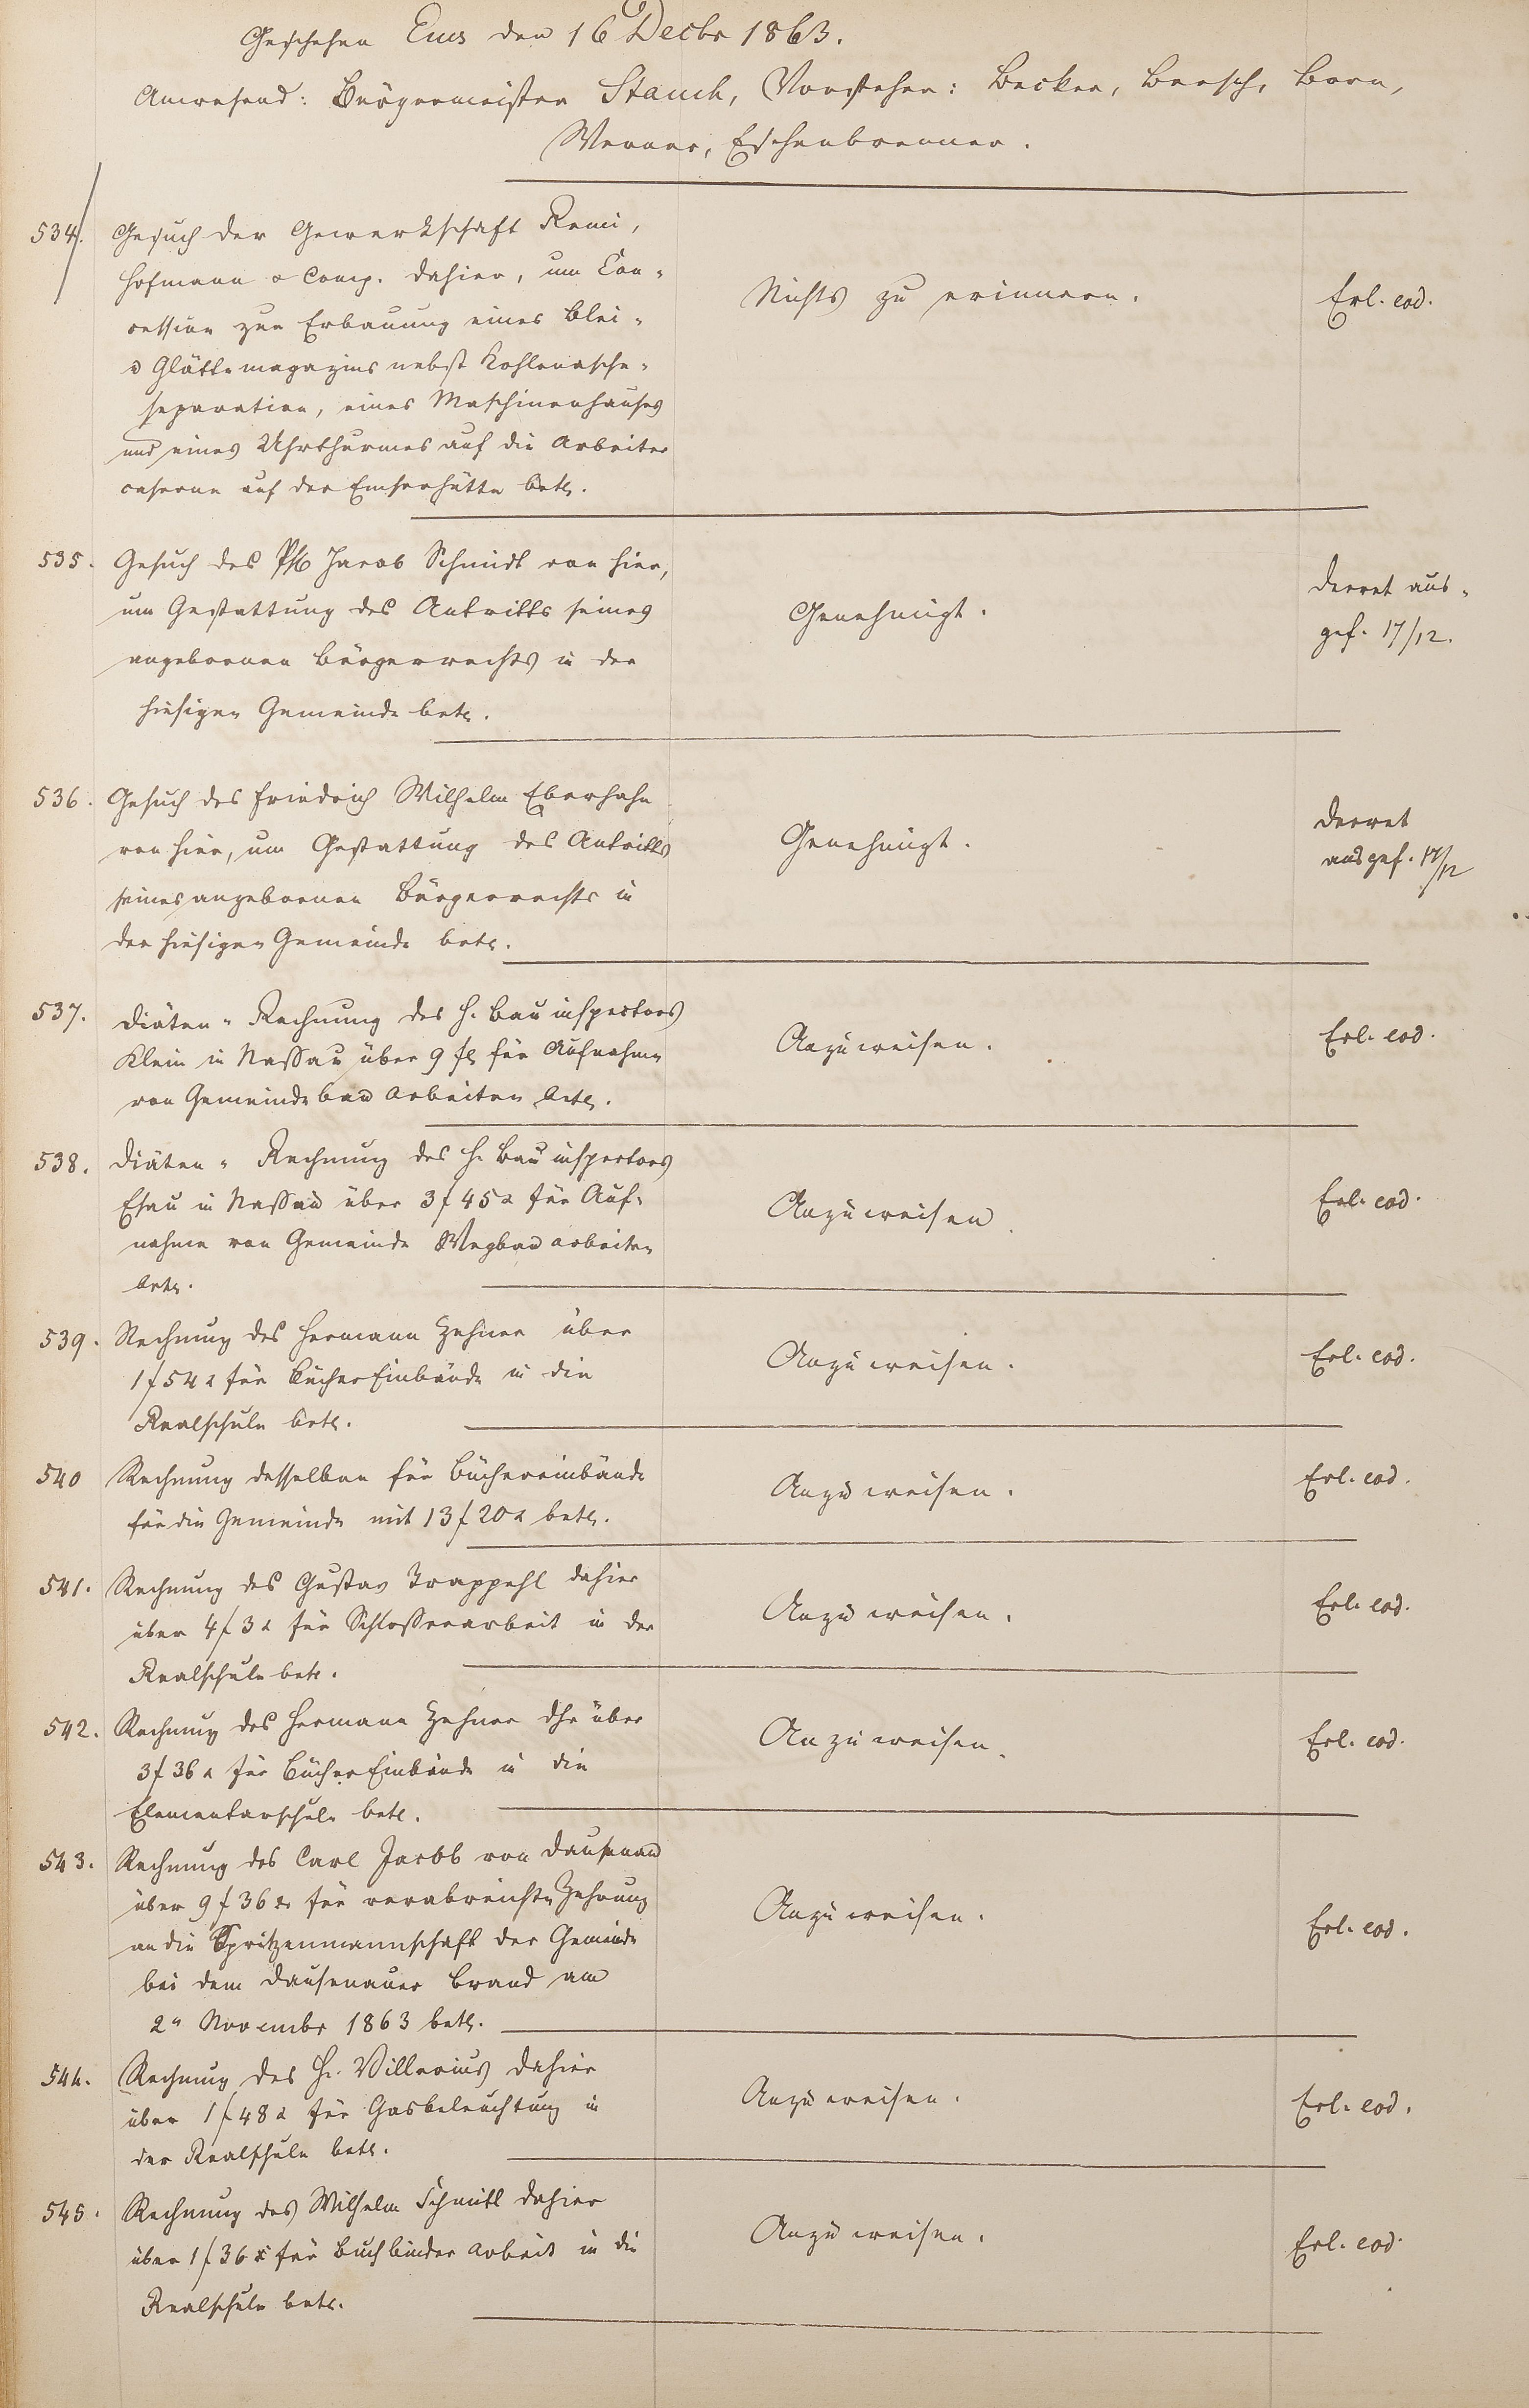 Geschehen Ems den 16 Decbr 1863.
Anwesend: Bürgermeister Stauch, Vorsteher: Becker, Bersch, Born,
Werner, Eschenbrenner.
534. Gesuch der Gewerkschaft Remi,
Hofmann & Comp. dahier, um Con-
cession zur Erbauung eines Blei-
& Glättemagazins nebst Kohlenasche-
separation, eines Maschinenhauses
und eines Uhrthurmes auf die Arbeiter
caserne auf der Emserhütte betr.
Nichts zu erinnern.
Erl. eod.
535. Gesuch des Ph Jacob Schmidt von hier,
um Gestattung des Antritts seines
angebornen Bürgerrechts in der
hiesigen Gemeinde betr.
Genehmigt.
Decret aus-
gef. 17/12.
536. Gesuch des Friedrich Wilhelm Eberhahn
von hier, um Gestattung des Antritts
seines angebornen Bürgerrechts in
der hiesigen Gemeinde betr.
Genehmigt.
Decret
ausgef. 17/12
537. Diäten-Rechnung des H. Bauinspectors
Klein in Nassau über 9 fl für Aufnahme
von Gemeindebau Arbeiten betr.
Anzuweisen.
Erl. eod.
538. Diäten-Rechnung des H. Bauinspectors
Esau in Nassau über 3 f 45 x für Auf-
nahme von Gemeinde Wegbau arbeiten
betr.
Anzuweisen
Erl. eod.
539. Rechnung des Hermann Zehner über
1 f 54 x für Bücher Einbände in die
Realschule betr.
Anzuweisen.
Erl. eod.
540 Rechnung desselben für Büchereinbände
für die Gemeinde mit 13 f 20 x betr.
Anzuweisen.
Erl. eod.
541. Rechnung des Gustav Trappehl dahier
über 4 f 3 x für Schlosserarbeit in der
Realschule betr.
Anzuweisen.
Erl. eod.
542. Rechnung des Hermann Zehner dhr über
3 f 36 x für Bücher Einbände in die
Elementarschule betr.
Anzuweisen.
Erl. eod.
543. Rechnung des Carl Jacob von Dausenau
über 9 f 36 x für verabreichte Zehrung
an die Spritzenmannschaft der Gemeinde
bei dem Dausenauer Brand am
2n Novembr 1863 betr.
Anzuweisen.
Erl. eod.
544. Rechnung des H. Villarius dahier
über 1 f 48 x für Gasbeleuchtung in
der Realschule betr.
Anzuweisen.
Erl. eod.
545. Rechnung des Wilhelm Schmitt dahier
über 1 f 36 x für Buchbinder Arbeit in die
Realschule betr.
Anzuweisen.
Erl. eod.